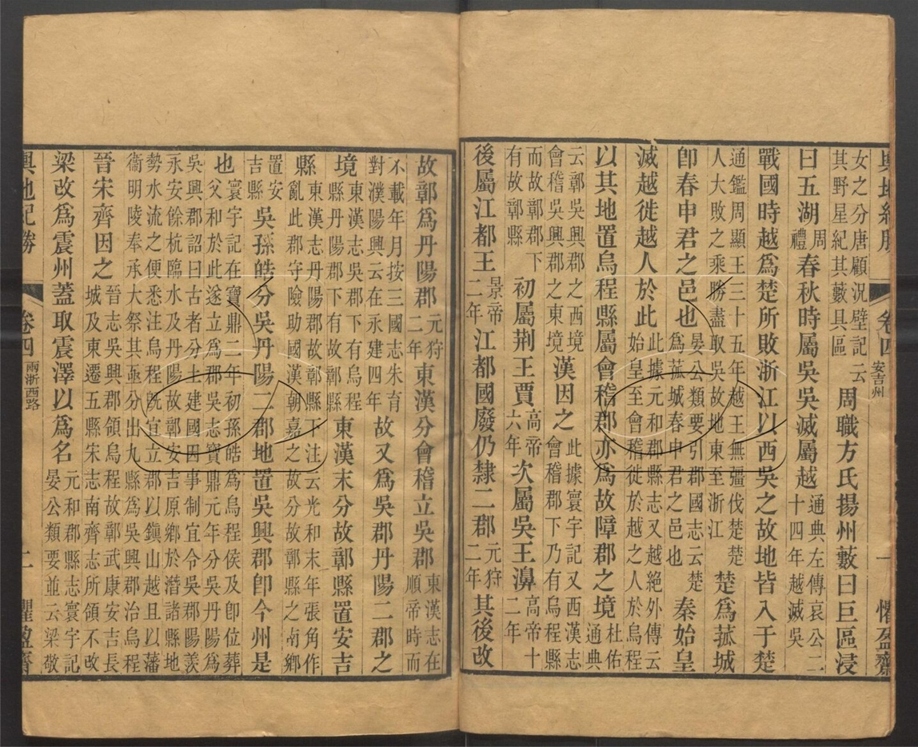 輿地紀勝 卷四 安吉州 一 懼盈齋
女之分唐顧況壁記云其野星紀其藪具區周職方氏揚州藪曰巨區浸
曰五湖周禮春秋時屬吳吳滅屬越通典左傳哀公二十四年越滅吳
戰國時越爲楚所敗浙江以西吳之故地皆入于楚
通鑑周顯王三十五年越王無彊伐楚楚人大敗之乘勝盡取吳故地東至浙江楚爲菰城
卽春申君之邑也晏公類要引郡國志云楚爲菰城春申君之邑也秦始皇
滅越徙越人於此此據元和郡縣志又越絕外傳云始皇至會稽徙於越之人於烏程
以其地置烏程縣屬會稽郡亦爲故障郡之境通典杜佑
云鄣吳興郡之西境會稽吳興郡之東境漢因之此據寰宇記又西漢志會稽郡下乃有烏程縣
而故鄣郡下有故鄣縣初屬荆王賈高帝六年次屬吳王濞高帝十二年
後屬江都王景帝二年江都國廢仍隸二郡元狩二年其後改
故鄣爲丹陽郡元狩二年東漢分會稽立吳郡東漢志在順帝時而
不載年月按三國志朱育對濮陽興云在永建四年故又爲吳郡丹陽二郡之
境東漢志吳郡下有烏程縣丹陽郡下有故鄣縣東漢末分故鄣縣置安吉
縣東漢志丹陽郡故鄣縣下注云光和末年張角作亂此郡守險助國漢朝嘉之故分鄣縣之南鄉
置安吉縣吳孫皓分吳丹陽二郡地置吳興郡卽今州是
也寰宇記在寶鼎二年初孫皓爲烏程侯及卽位葬父和於此遂立爲郡吳志寶鼎元年分吳丹陽爲
吳興郡詔曰古者分土建國四事制宜今吳郡陽羨永安餘杭臨水及丹陽故鄣安吉原鄉於潛諸縣地
勢水流之便悉注烏程旣宜立郡以鎭山越且以藩衞明陵奉承大祭其亟分出九縣爲吳興郡治烏程
晉宋齊因之晉志吳興郡領烏程故鄣武康安吉長城及東遷五縣宋志南齊志所領不改
梁改爲震州蓋取震澤以爲名元和郡縣志寰宇記晏公類要並云梁敬
輿地紀勝 卷四 兩浙西路 二 懼盈齋